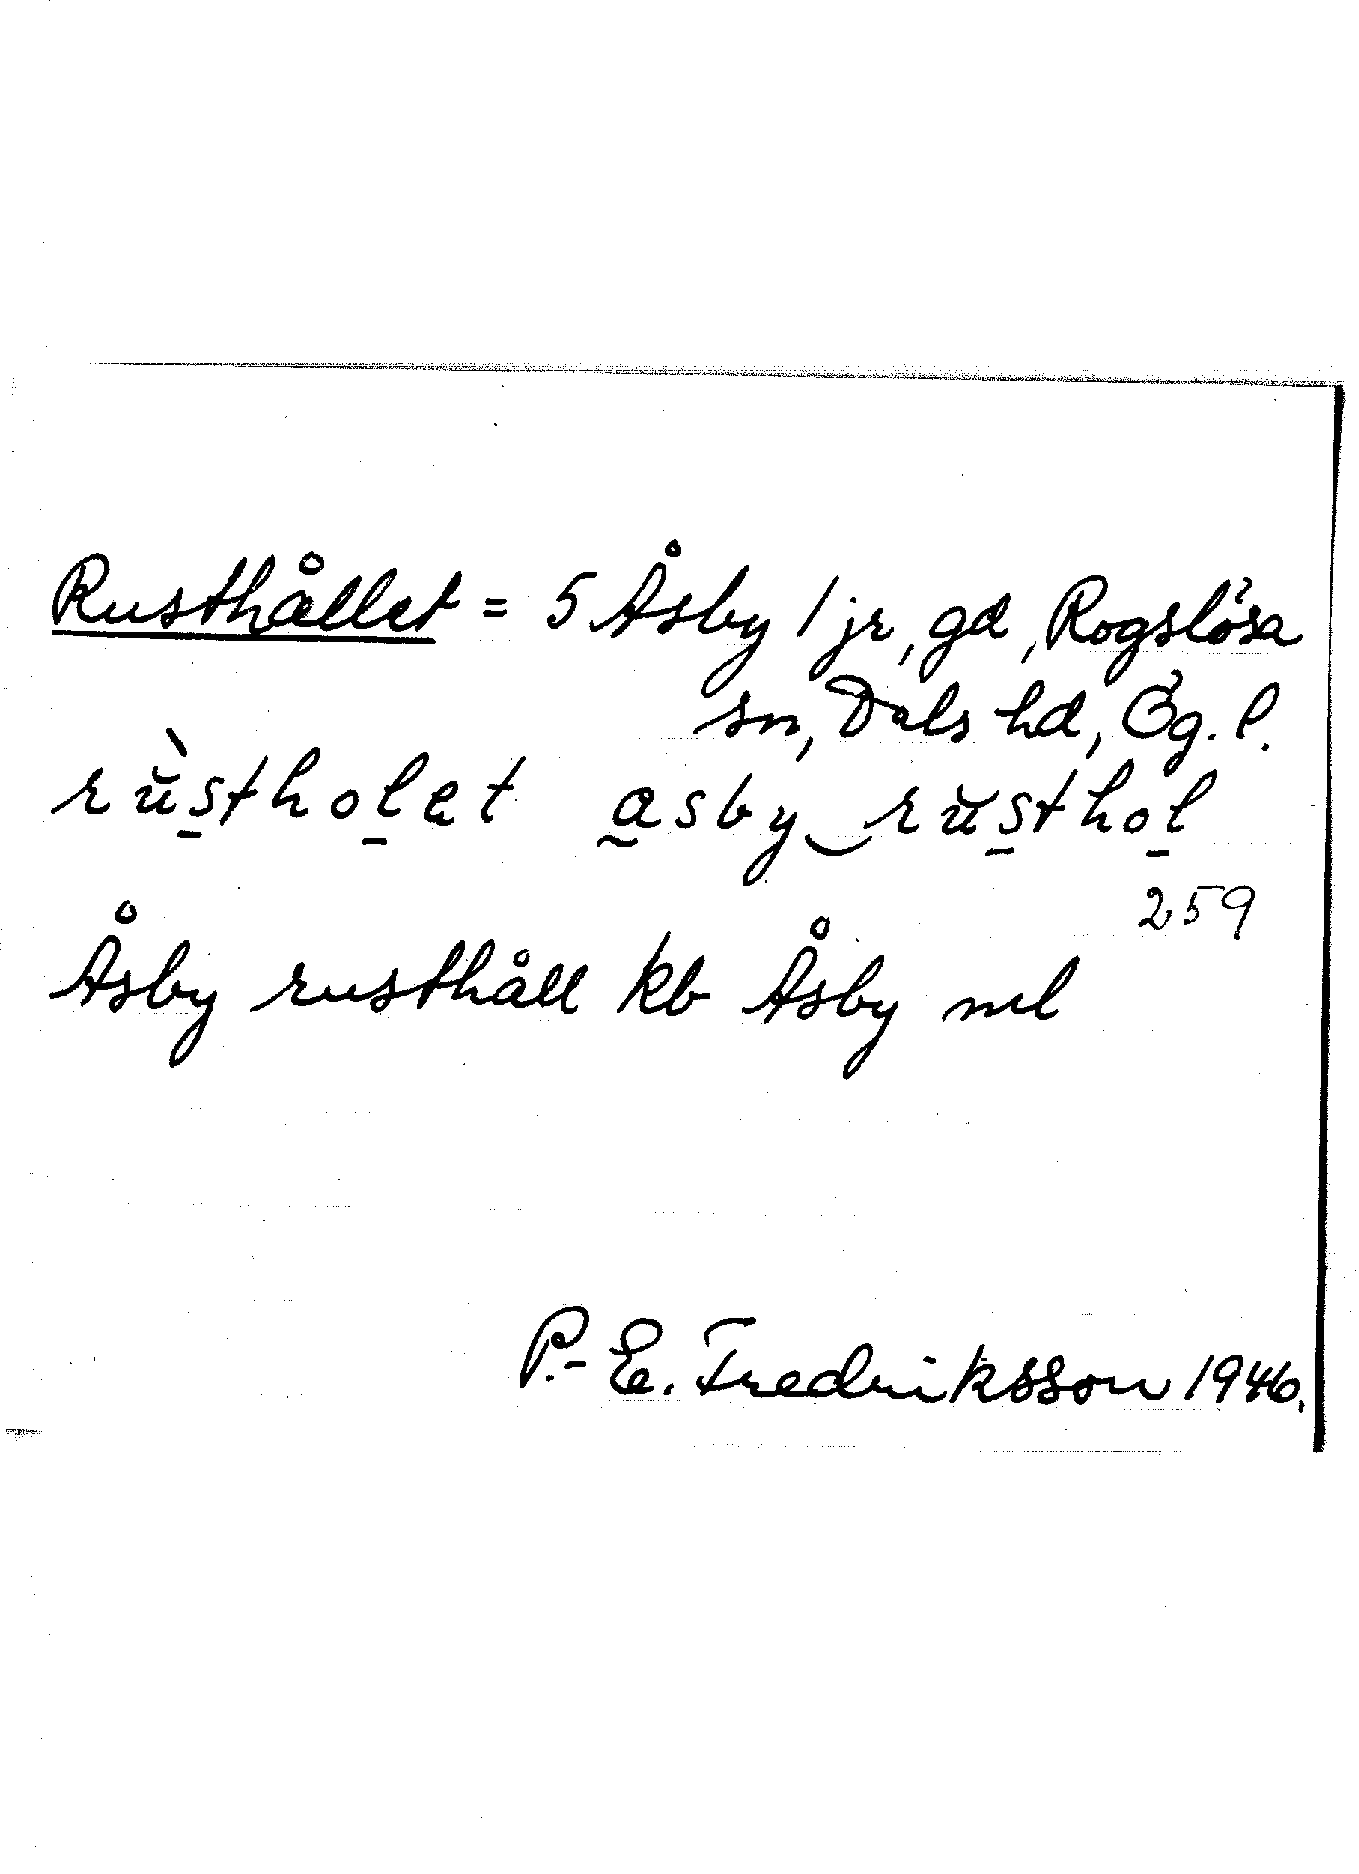 Rusthållet = 5 Åsby 1 jr, gd, Rogslösa
sn, Dals hd, Ög. l.
rŭ̀s̱thoḻet a̰sby‿rŭs̱thoḻ
259
Åsby rusthåll kb Åsby ml
P.-E. Fredriksson 1946.